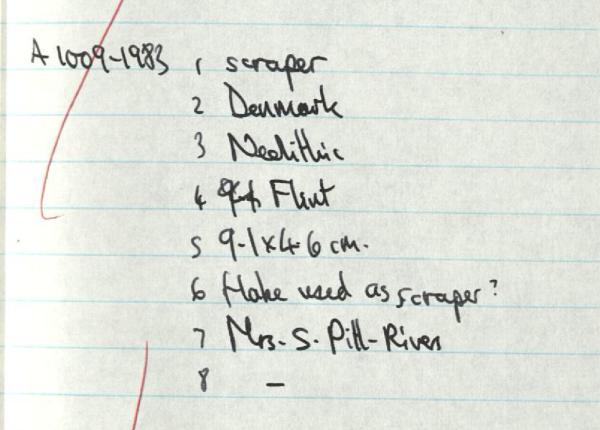 A1009-1983 1 scraper
2 Denmark
3 Neolithic
4 Flint
5 9.1 x 4.6 cm.
6 flake used as scraper?
7 Mrs. S. Pitt-Rivers
8 –